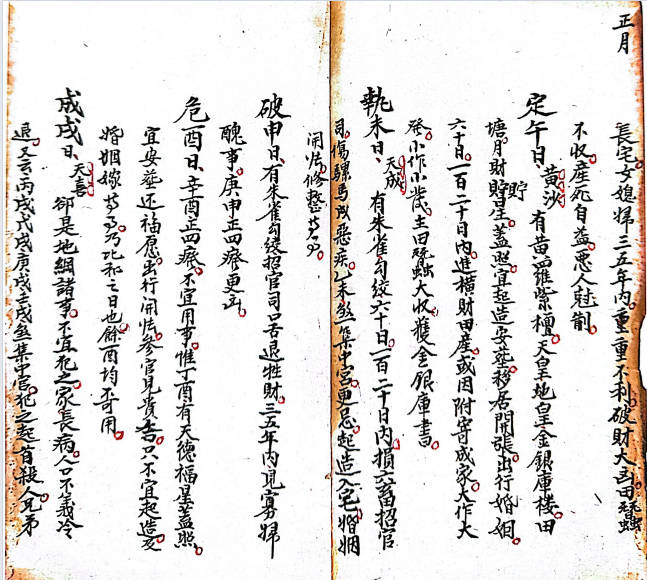 正月
長宅女媳婦三五年内重重不利破財大凶田蠶
不收產死自益惡人尅制
定午日黃沙有黃羅紫檀天皇地皇金銀庫楼田
塘月財貯星蓋照宜起造安葬移居開張出行婚姻
貯
六十日一百二十日內進橫財田產或因附寄成家大作大
發小作小發主田蠶大收獲金銀庫書
執未日天成有朱雀勾绞六十日一百二十日内損六畜招官
司傷騾馬成惡疾乙未煞集中宮更忌起造入宅婚姻
開張修整等事
破申日有朱雀勾绞招官司口舌退牲財三五年内見寡婦
醜事庚申正四廢更凶
危酉日辛酉正四廢不宜用事惟丁酉有天德福星蓋照
宜安葬还福愿出行開張参官見貴吉只不宜起造及
婚姻嫁等事乃比和之日也餘酉均不可用
成戌日天喜卻是地網諸事不宜犯之家長病人口不義冷
退又云丙戌戊戌庚戌壬戌煞集中宫犯之起有殺人兄弟